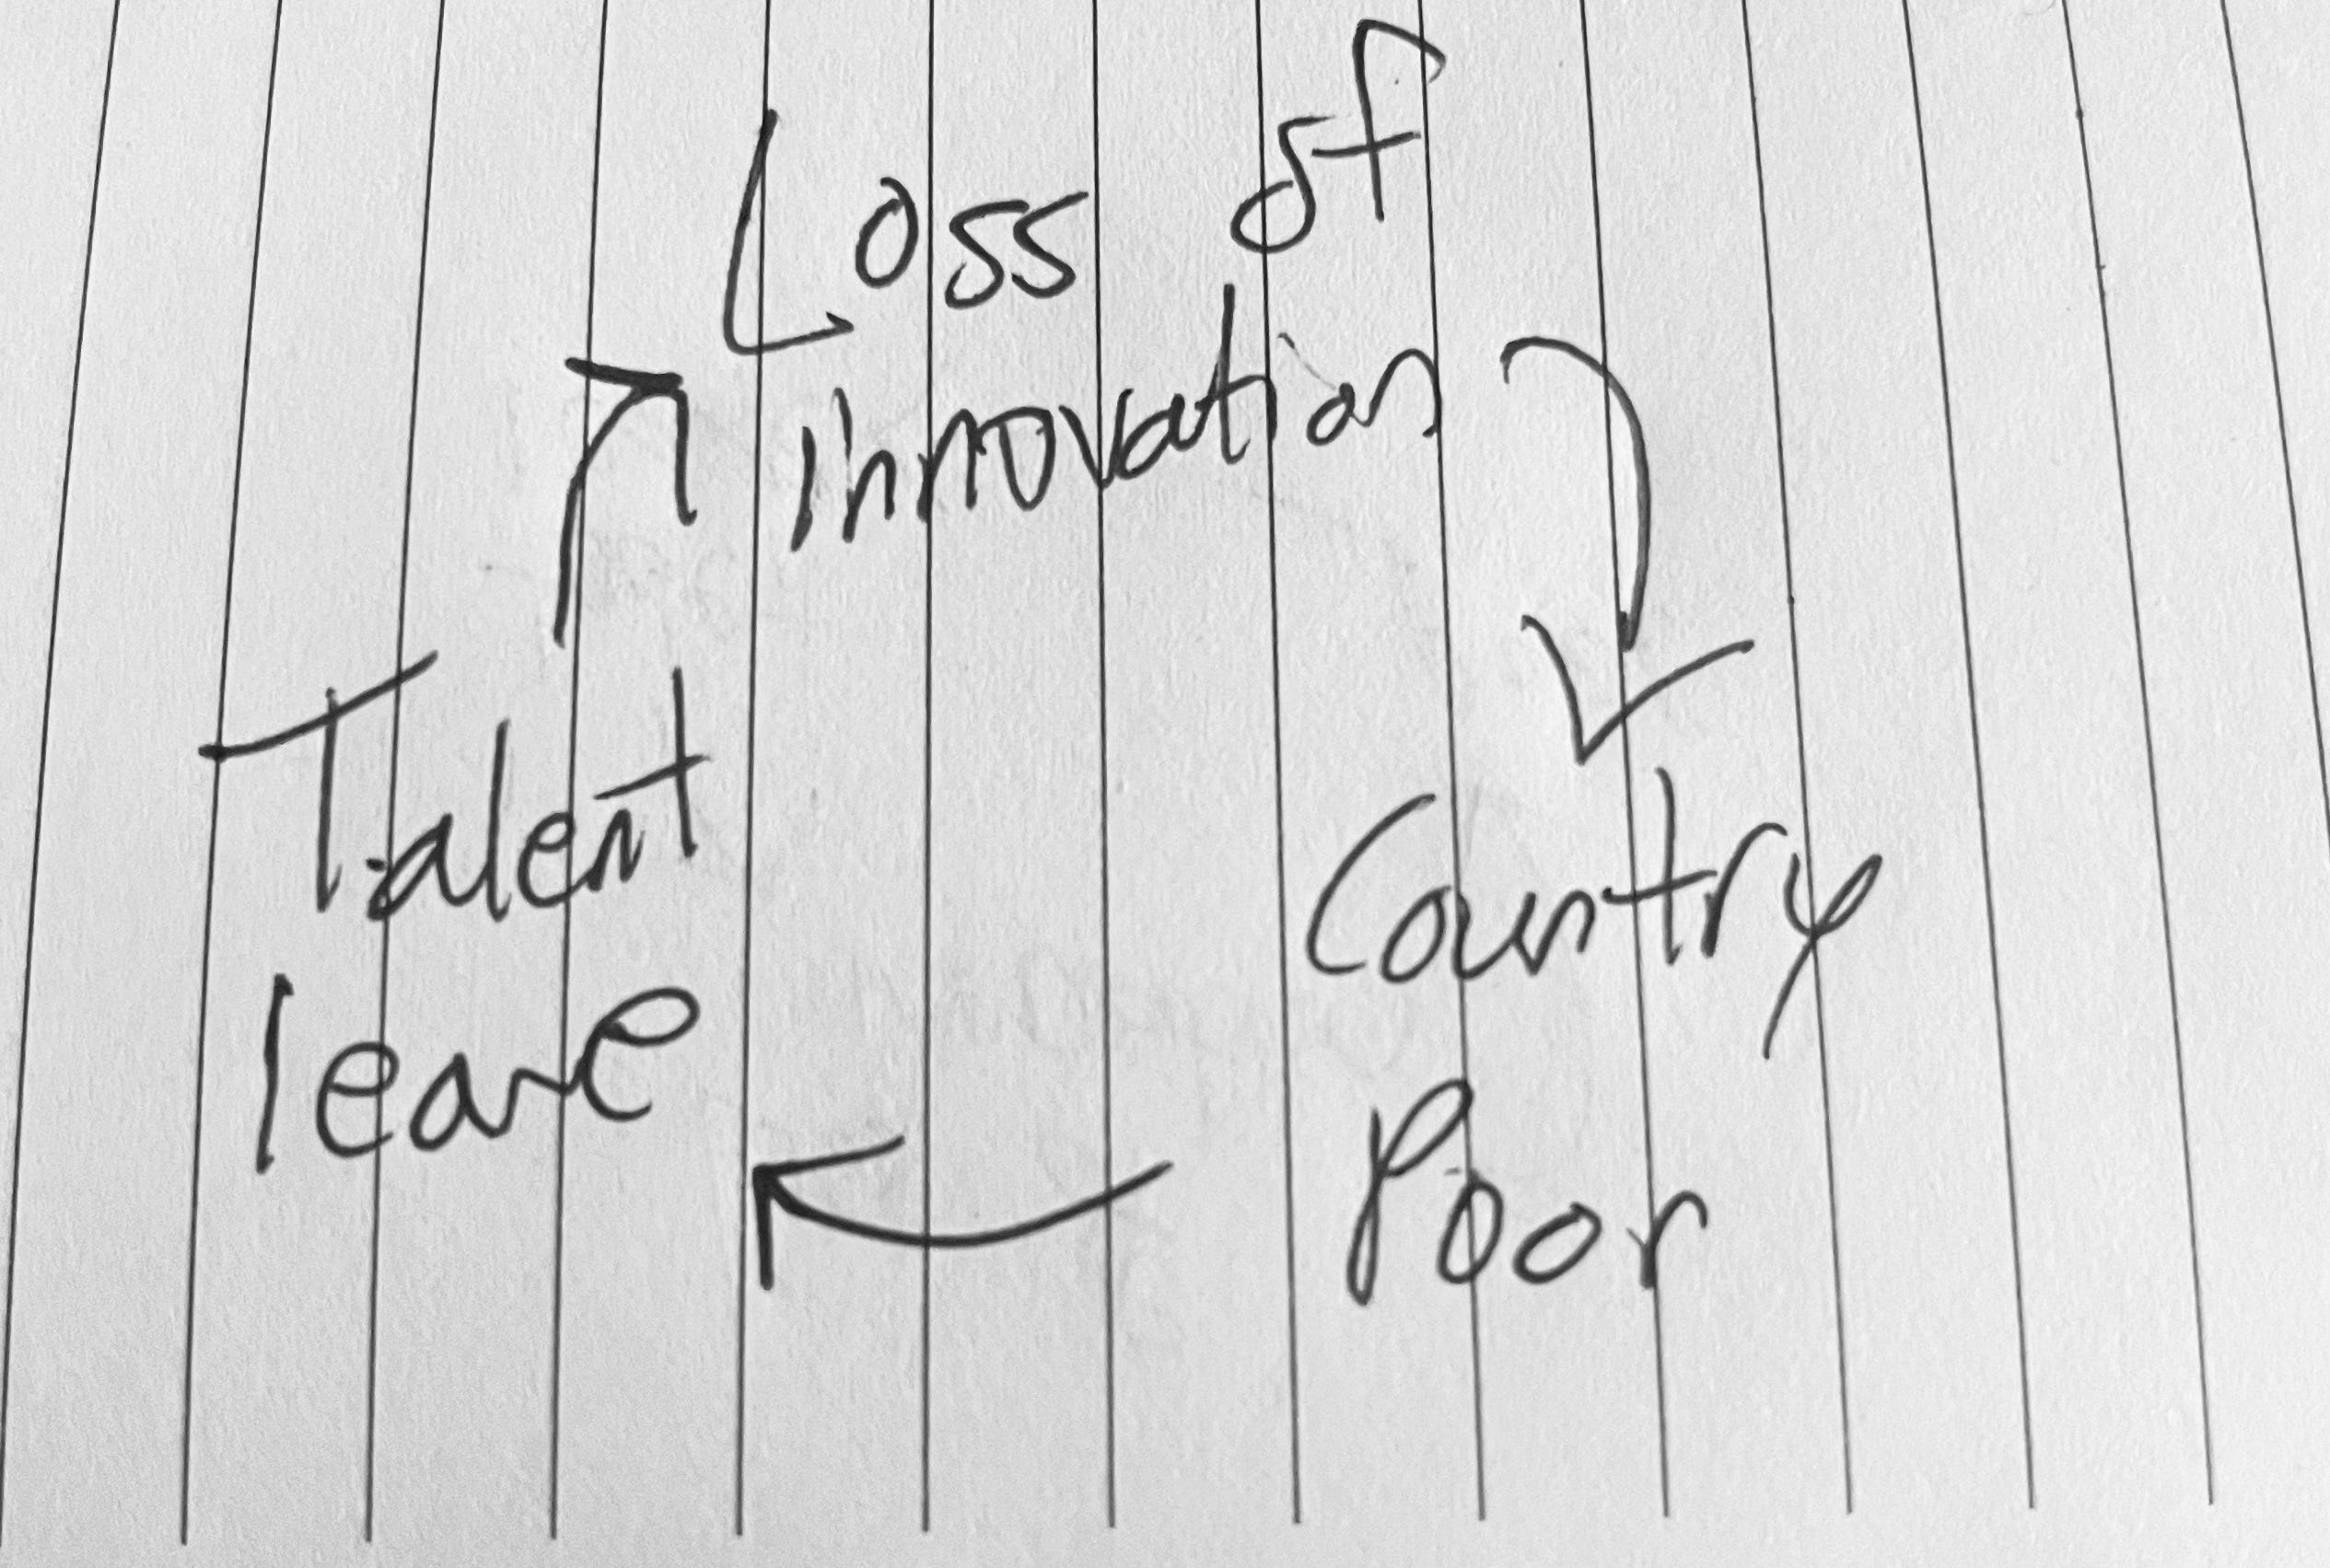 Loss of
innovation
Country
Poor
Talent
leave